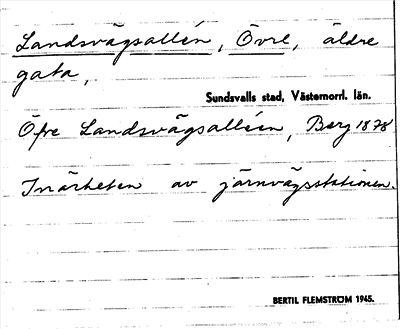 Landsvägsallén, Övre, äldre
gata,
Sundsvalls stad, Västernorrl. län.
Öfre Landsvägsalléen, Berg 1878
I närheten av järnvägsstationen.
BERTIL FLEMSTRÖM 1945.